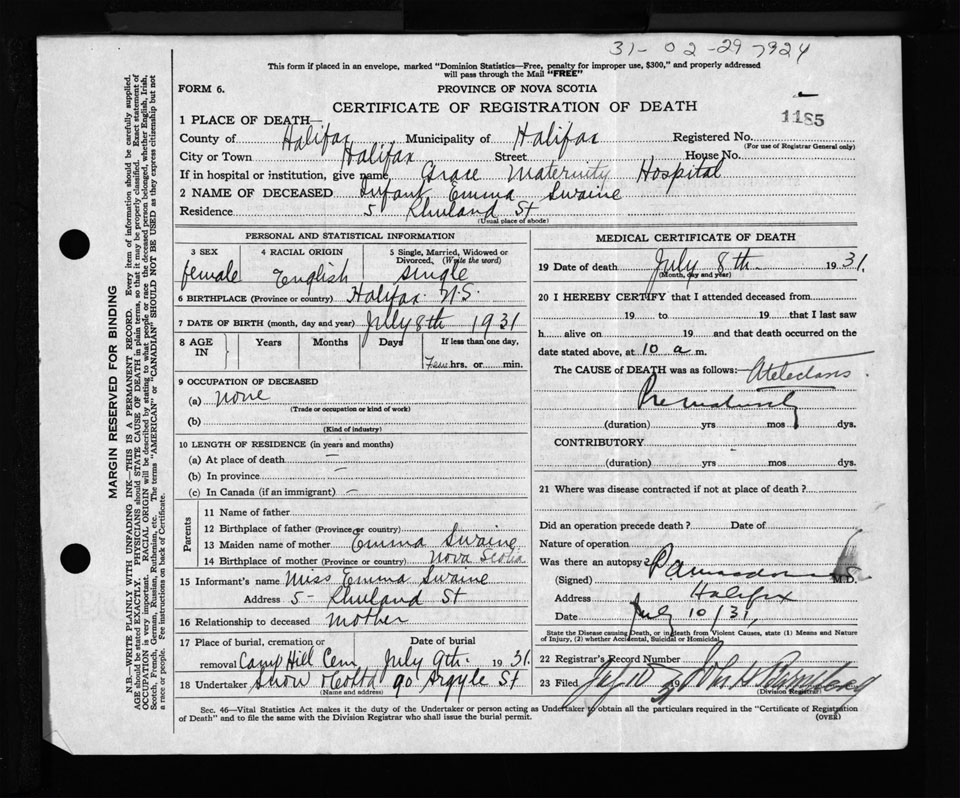 31-02-29 7924
This form if placed in an envelope, marked "Dominion Statistics—Free, penalty for improper use, $300," and properly addressed
will pass through the Mail "FREE"
FORM 6.
PROVINCE OF NOVA SCOTIA
CERTIFICATE OF REGISTRATION OF DEATH
1185
1 PLACE OF DEATH—
County of Halifax Municipality of Halifax Registered No.
(For use of Registrar General only)
City or Town Halifax Street House No.
If in hospital or institution, give name Grace Maternity Hospital
2 NAME OF DECEASED Infant Emma Swaine
Residence 5 St
(Usual place of abode)
PERSONAL AND STATISTICAL INFORMATION
3 SEX 4 RACIAL ORIGIN 5 Single, Married, Widowed or
Divorced, (Write the word)
female English single
6 BIRTHPLACE (Province or country) Halifax N.S.
7 DATE OF BIRTH (month, day and year) July 8th 1931
8 AGE IN Years Months Days If less than one day,
Few hrs. or min.
9 OCCUPATION OF DECEASED
(a) none
(Trade or occupation or kind of work)
(b)
(Kind of industry)
10 LENGTH OF RESIDENCE (in years and months)
(a) At place of death —
(b) In province —
(c) In Canada (if an immigrant) —
Parents
11 Name of father
12 Birthplace of father (Province or country)
13 Maiden name of mother Emma Swaine
14 Birthplace of mother (Province or country) Nova Scotia
15 Informant's name Miss Emma Swaine
Address 5- St
16 Relationship to deceased mother
17 Place of burial, cremation or Date of burial
removal Camp Hill Cem July 9th 1931.
18 Undertaker Snow 90 Argyle St
(Name and address)
MEDICAL CERTIFICATE OF DEATH
19 Date of death July 8th 1931.
(Month, day and year)
20 I HEREBY CERTIFY that I attended deceased from
19 to 19 that I last saw
h alive on 19 and that death occurred on the
date stated above, at 10 a m.
The CAUSE of DEATH was as follows:
Prematurity
(duration) yrs mos dys.
CONTRIBUTORY
(duration) yrs mos dys.
21 Where was disease contracted if not at place of death?
Did an operation precede death? Date of
Nature of operation
Was there an autopsy?
(Signed) M.D.
Address Halifax
Date July 10/31,
State the Disease causing Death, or in death from Violent Causes, state (1) Means and Nature
of Injury, (2) whether Accidental, Suicidal or Homicidal.
22 Registrar's Record Number
23 Filed 10 19
(Division Registrar)
Sec. 46—Vital Statistics Act makes it the duty of the Undertaker or person acting as Undertaker to obtain all the particulars required in the "Certificate of Registration
of Death" and to file the same with the Division Registrar who shall issue the burial permit.
(OVER)
MARGIN RESERVED FOR BINDING
N.B.—WRITE PLAINLY WITH UNFADING INK—THIS IS A PERMANENT RECORD. Every item of information should be carefully supplied.
AGE should be stated EXACTLY. PHYSICIANS should STATE CAUSE OF DEATH in plain terms, so that it may be properly classified. Exact statement of
OCCUPATION is very important. RACIAL ORIGIN will be described by stating to what people or race the deceased person belonged, whether English, Irish,
Scotch, French, German, Russian, Ruthenian, etc. The terms "AMERICAN" or "CANADIAN" SHOULD NOT BE USED as they express citizenship but not
a race or people. Fee instructions on back of Certificate.